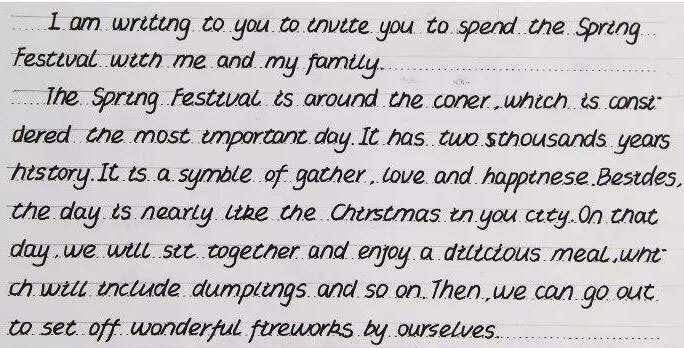 I am writing to you to invite you to spend the Spring
Festival with me and my family.
The Spring Festival is around the coner, which is consi-
dered the most important day. It has two sthousands years
history. It is a symble of gather, love and happinese. Besides,
the day is nearly like the Chirstmas in you city. On that
day, we will sit together and enjoy a dilicious meal, whi-
ch will include dumplings and so on. Then, we can go out
to set off wonderful fireworks by ourselves.